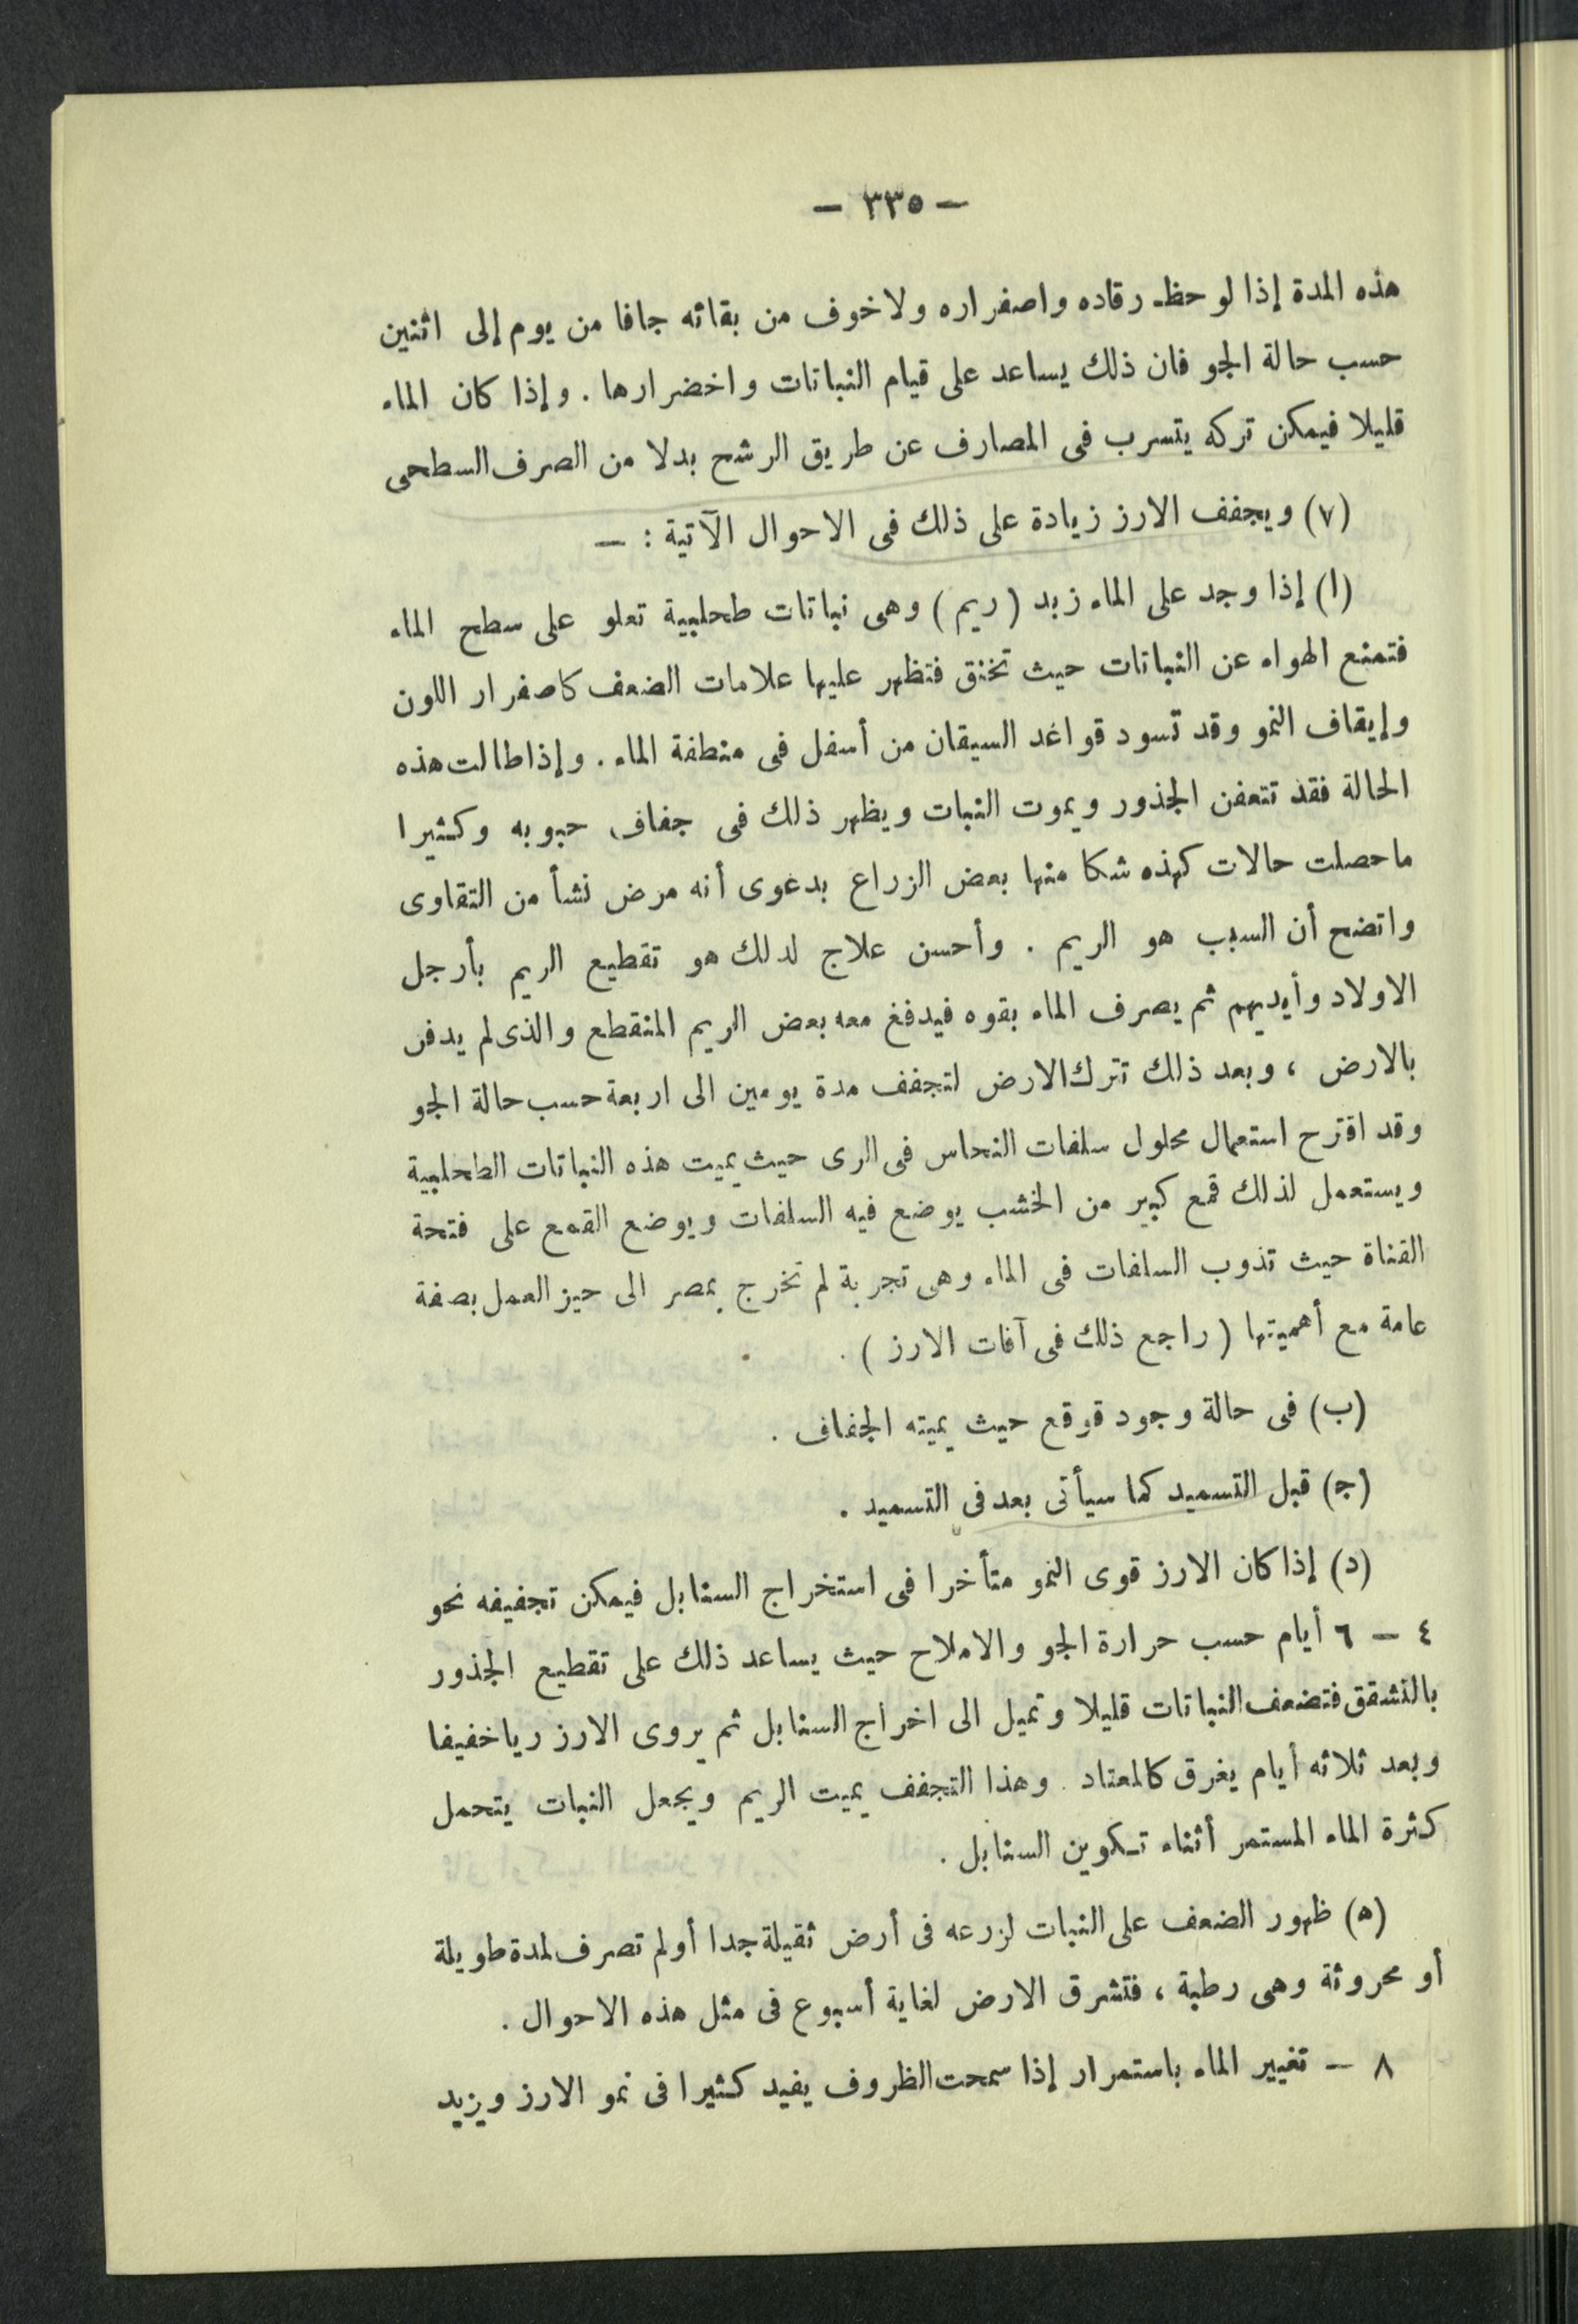 — ٣٣٥ —
هذه المدة إذا لوحظ رقاده واصفراره ولا خوف من بقائه جافا من يوم إلى اثنين
حسب حالة الجو فان ذلك يساعد على قيام النباتات واخضرارها . وإذا كان الماء
قليلا فيمكن تركه يتسرب فى المصارف عن طريق الرشح بدلا من الصرف السطحى
(٧) ويجفف الارز زيادة على ذلك فى الاحوال الآتية : —
(ا) إذا وجد على الماء زبد (ريم) وهى نباتات طحلبية تعلو على سطح الماء
فتمنع الهواء عن النباتات حيث تختنق فتظهر عليها علامات الضعف كاصفرار اللون
وإيقاف النمو وقد تسود قواغد السيقان من أسفل فى منطفة الماء . وإذا طالت هذه
الحالة فقد تتعفن الجذور ويموت النبات ويظهر ذلك فى جفاف حبوبه وكثيرا
ماحصلت حالات كهذه شكا منها بعض الزراع بدعوى أنه مرض نشأ من التقاوى
واتضح أن السبب هو الريم . وأحسن علاج لدلك هو تقطيع الريم بأرجل
الاولاد وأيديهم ثم يصرف الماء بقوه فيدفغ معه بعض الريم المنقطع والذى لم يدفن
بالارض ، وبعد ذلك تترك الارض لتجفف مدة يومين الى اربعة حسب حالة الجو
وقد اقترح استعمال محلول سلفات النحاس فى الرى حيث يميت هذه النباتات الطحلبية
ويستعمل لذلك قمع كبير من الخشب يوضع فيه السلفات ويوضع القمع على فتحة
القناة حيث تذوب السلفات فى الماء وهى تجربة لم تخرج بمصر الى حيز العمل بصفة
عامة مع أهميتها (راجع ذلك فى آفات الارز) .
(ب) فى حالة وجود قوقع حيث يميته الجفاف .
(ج) قبل التسميد كما سيأتى بعد فى التسميد .
(د) إذا كان الارز قوى النمو متأخرا فى استخراج السنابل فيمكن تجفيفه نحو
٤ — ٦ أيام حسب حرارة الجو والاملاح حيث يساعد ذلك على تقطيع الجذور
بالتشقق فتضعف النباتات قليلا وتميل الى اخراج السنابل ثم يروى الارز ريا خفيفا
وبعد ثلاثه أيام يغرق كالمعتاد . وهذا التجفف يميت الريم ويجعل النبات يتحمل
كثرة الماء المستمر أثناء تكوين السنابل .
(ه) ظهور الضعف على النبات لزرعه فى أرض ثقيلة جدا أو لم تصرف لمدة طويلة
أو محروثة وهى رطبة ، فتشرق الارض لغاية أسبوع فى مثل هذه الاحوال .
٨ — تغيير الماء باستمرار إذا سمحت الظروف يفيد كثيرا فى نمو الارز ويزيد